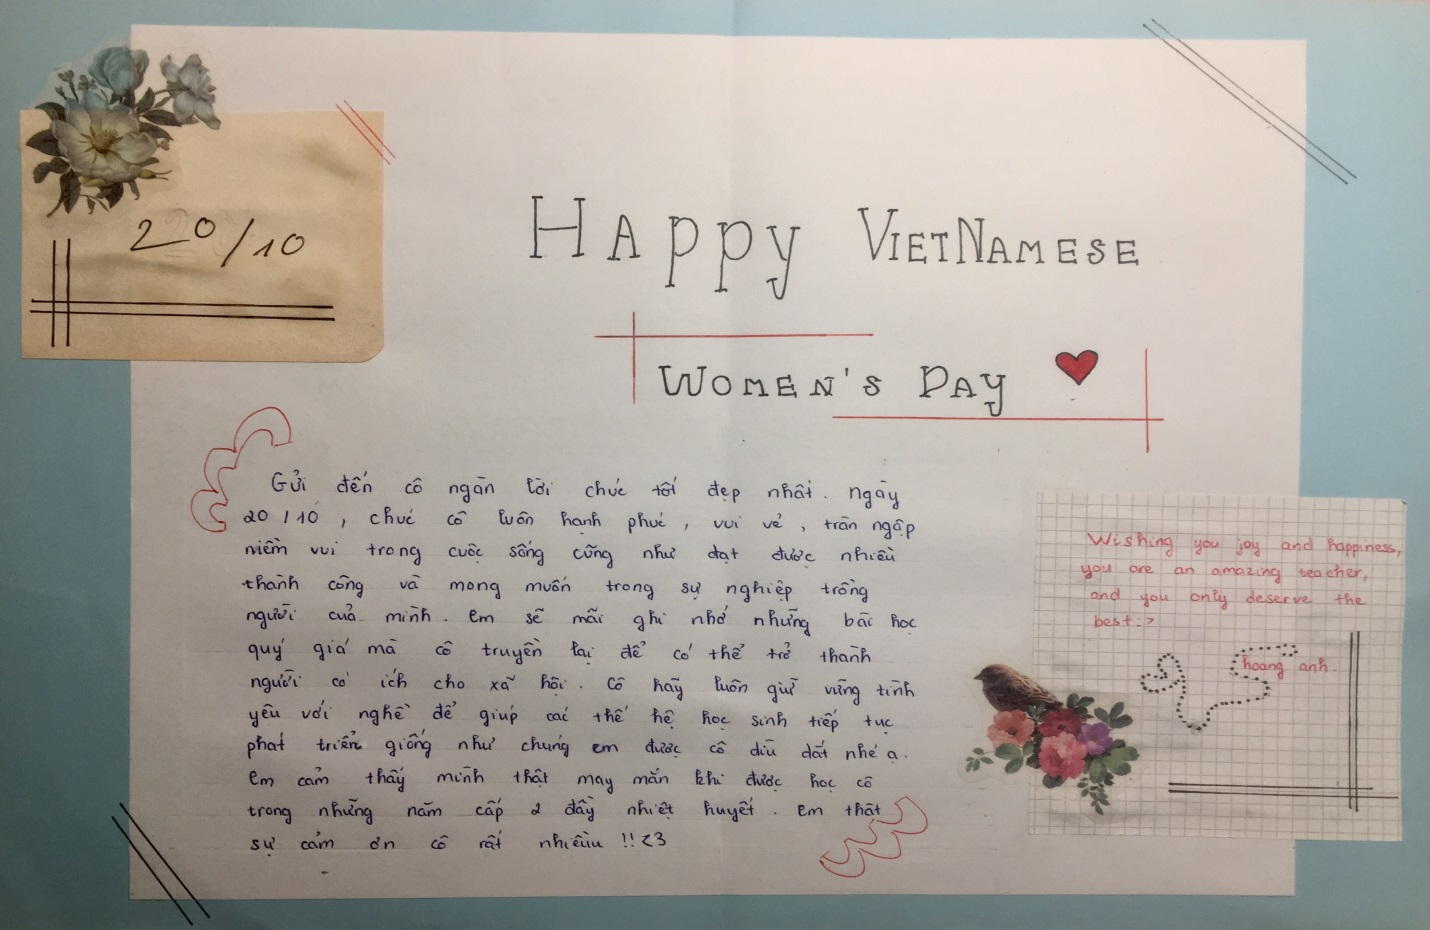 20/10
Happy VietNamese
Women's Day
Gửi đến cô ngàn lời chúc tốt đẹp nhất. Ngày
20/10, chúc cô luôn hạnh phúc, vui vẻ, tràn ngập
niềm vui trong cuộc sống cũng như đạt được nhiều
thành công và mong muốn trong sự nghiệp trồng
người của mình. Em sẽ mãi ghi nhớ những bài học
quý giá mà cô truyền lại để có thể trở thành
người có ích cho xã hội. Cô hãy luôn giữ vững tình
yêu với nghề để giúp các thế hệ học sinh tiếp tục
phát triển giống như chúng em được cô dìu dắt nhé ạ.
Em cảm thấy mình thật may mắn khi được học cô
trong những năm cấp 2 đầy nhiệt huyết. Em thật
sự cảm ơn cô rất nhiềuu !! <3
Wishing you joy and happiness,
you are an amazing teacher,
and you only deserve the
best :>
hoang anh.